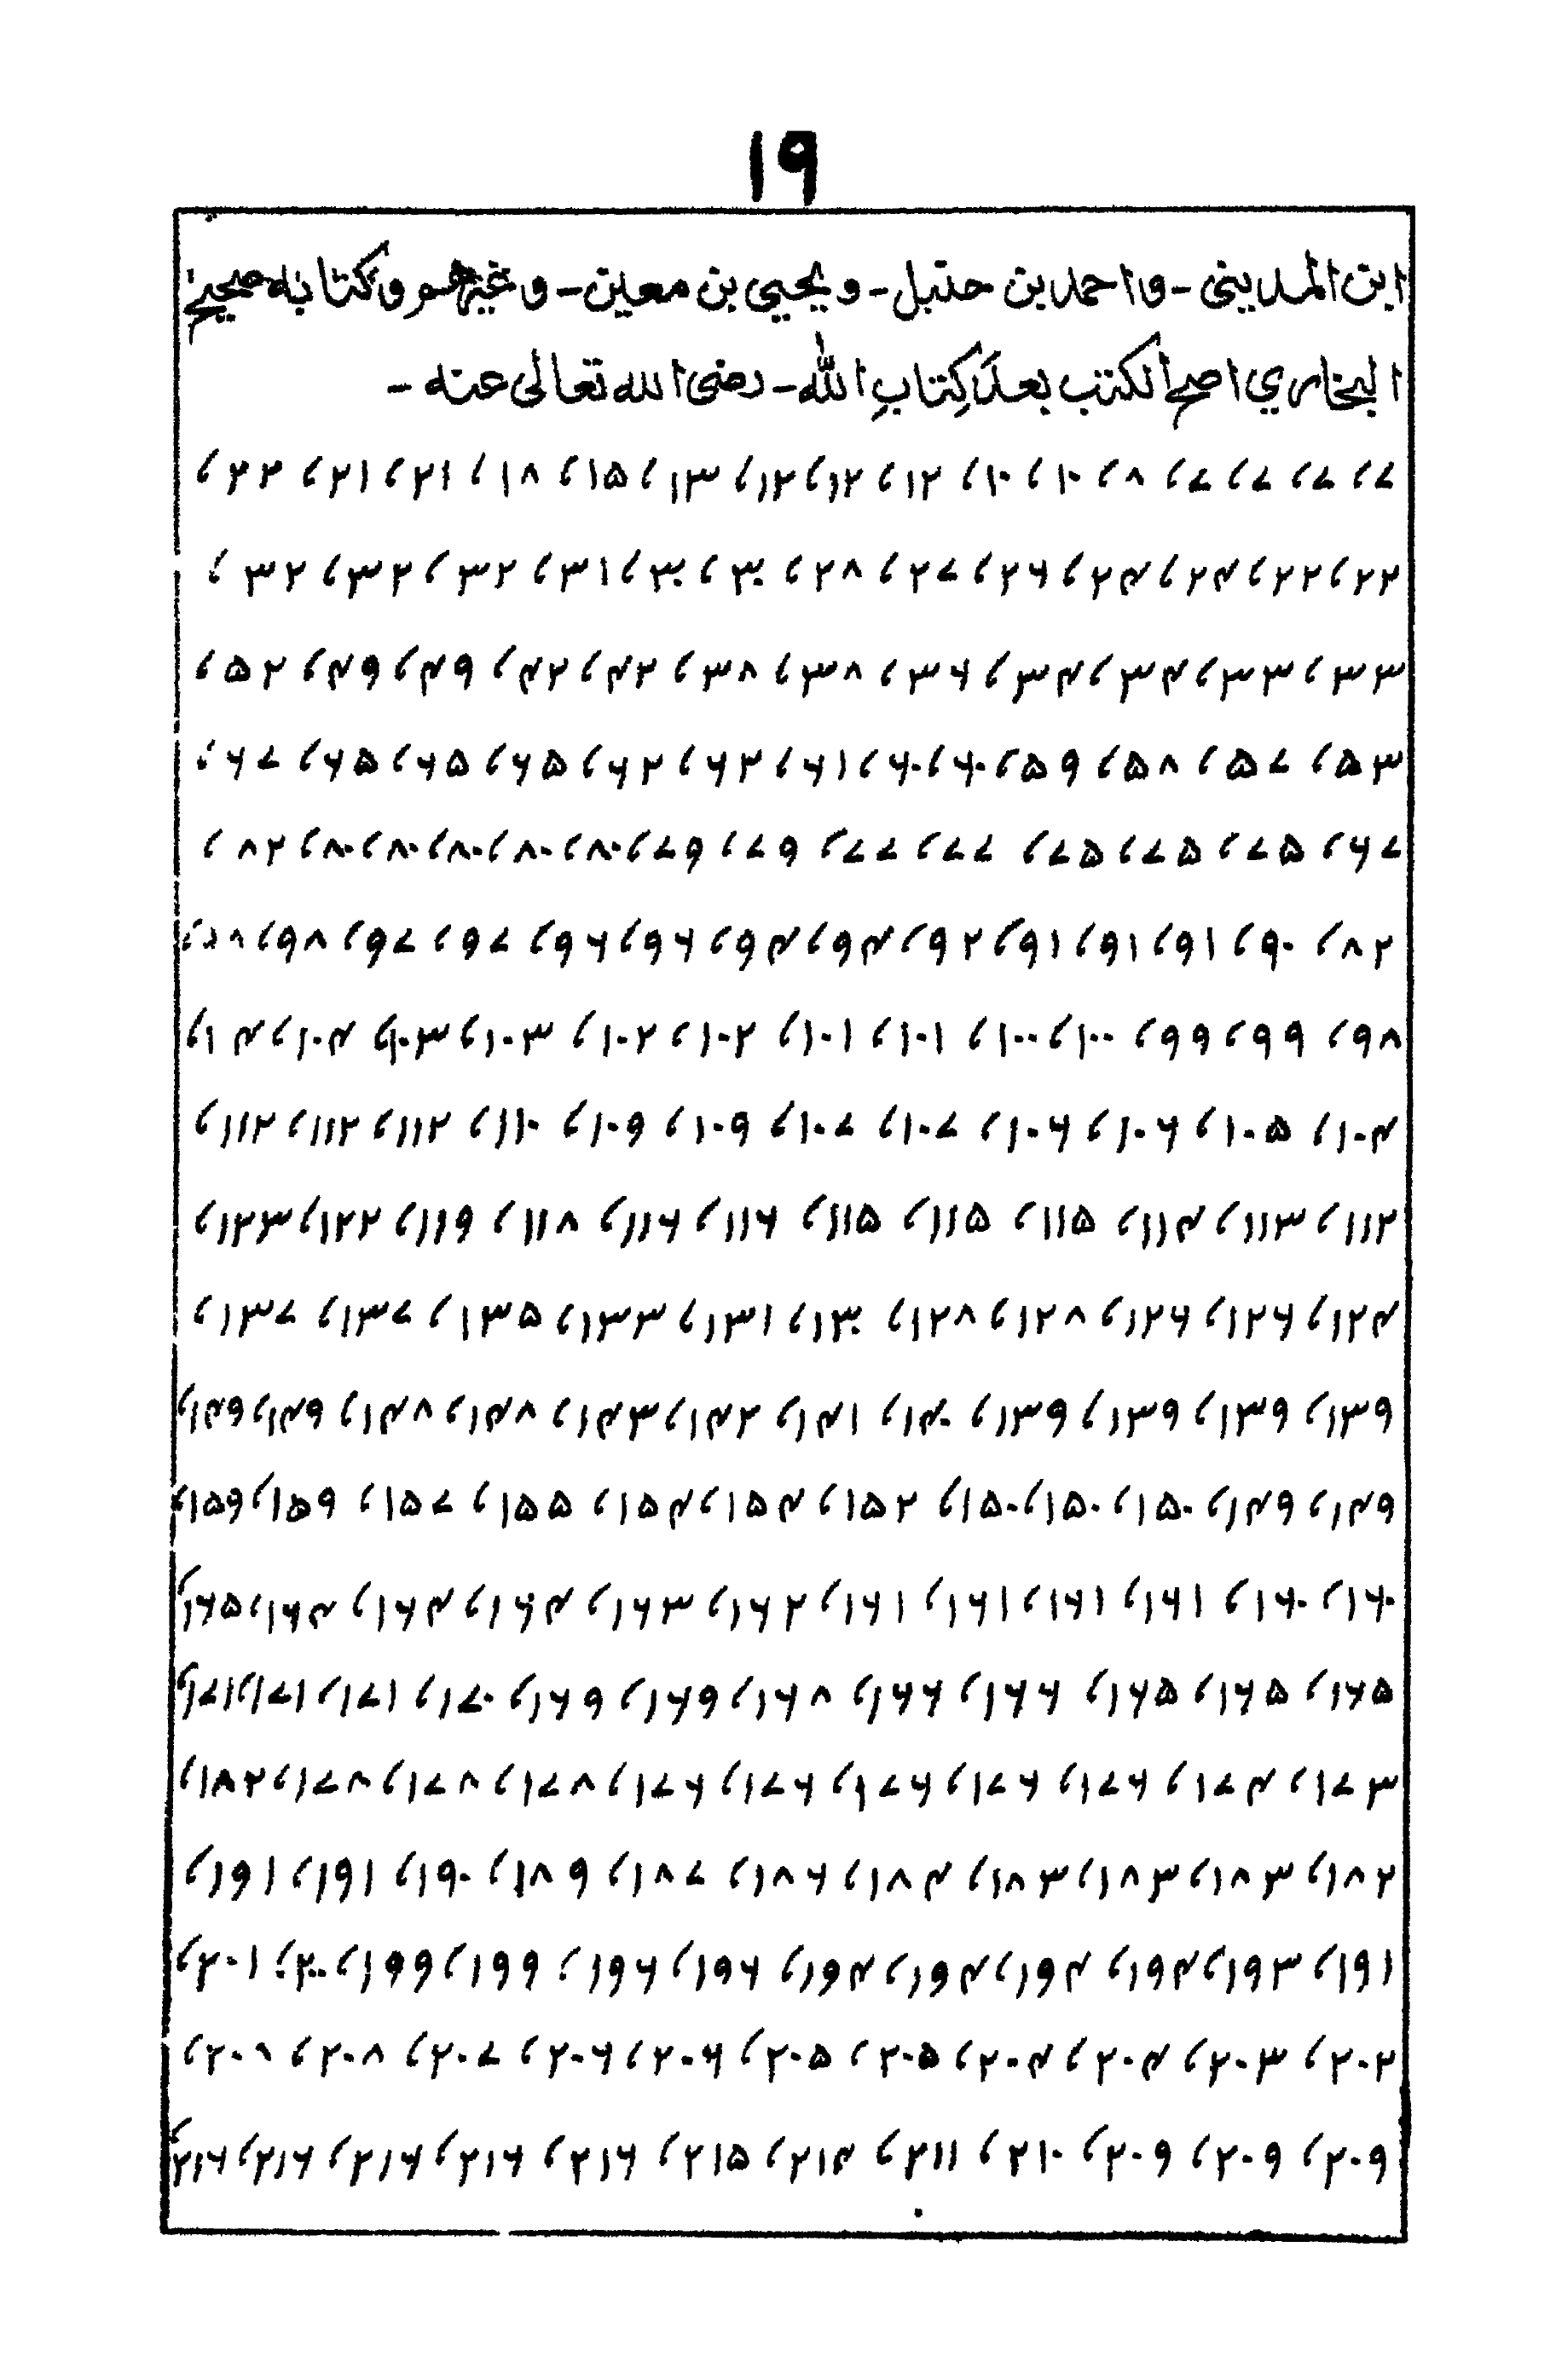 ۱۹
ابن المديني - واحمد بن حنبل - ويحيي بن معين - وغيرهم وكتابه صحيح
البخاري اصح الكتب بعد كِتابِ الله - رضى الله تعالى عنه -
۷، ۷، ۷، ۷، ۸، ۱۰، ۱۰، ۱۲، ۱۲، ۱۲، ۱۳، ۱۵، ۱۸، ۲۱، ۲۱، ۲۲،
۲۲، ۲۲، ۲۴، ۲۴، ۲۶، ۲۷، ۲۸، ۳۰، ۳۰، ۳۱، ۳۲، ۳۲، ۳۲،
۳۳، ۳۳، ۳۴، ۳۴، ۳۶، ۳۸، ۳۸، ۴۲، ۴۲، ۴۹، ۴۹، ۵۲،
۵۳، ۵۷، ۵۸، ۵۹، ۶۰، ۶۰، ۶۱، ۶۲، ۶۲، ۶۵، ۶۵، ۶۵، ۶۷،
۶۷، ۷۵، ۷۵، ۷۵، ۷۷، ۷۷، ۷۹، ۷۹، ۸۰، ۸۰، ۸۰، ۸۰، ۸۰، ۸۲،
۸۲، ۹۰، ۹۱، ۹۱، ۹۱، ۹۲، ۹۴، ۹۴، ۹۶، ۹۶، ۹۷، ۹۷، ۹۸،
۹۸، ۹۹، ۹۹، ۱۰۰، ۱۰۰، ۱۰۱، ۱۰۱، ۱۰۲، ۱۰۲، ۱۰۳، ۱۰۳، ۱۰۴، ۱۴،
۱۰۴، ۱۰۵، ۱۰۶، ۱۰۶، ۱۰۷، ۱۰۷، ۱۰۹، ۱۰۹، ۱۱۰، ۱۱۲، ۱۱۲، ۱۱۲،
۱۱۲، ۱۱۳، ۱۱۴، ۱۱۵، ۱۱۵، ۱۱۵، ۱۱۶، ۱۱۶، ۱۱۸، ۱۱۹، ۱۲۲، ۱۲۳،
۱۲۴، ۱۲۶، ۱۲۶، ۱۲۸، ۱۲۸، ۱۳۰، ۱۳۱، ۱۳۳، ۱۳۵، ۱۳۷، ۱۳۷،
۱۳۹، ۱۳۹، ۱۳۹، ۱۳۹، ۱۴۰، ۱۴۱، ۱۴۲، ۱۴۳، ۱۴۸، ۱۴۸، ۱۴۹، ۱۴۹،
۱۴۹، ۱۴۹، ۱۵۰، ۱۵۰، ۱۵۰، ۱۵۲، ۱۵۴، ۱۵۴، ۱۵۵، ۱۵۷، ۱۵۹، ۱۵۹،
۱۶۰، ۱۶۰، ۱۶۱، ۱۶۱، ۱۶۱، ۱۶۱، ۱۶۲، ۱۶۳، ۱۶۴، ۱۶۴، ۱۶۴، ۱۶۵،
۱۶۵، ۱۶۵، ۱۶۵، ۱۶۶، ۱۶۶، ۱۶۸، ۱۶۹، ۱۶۹، ۱۷۰، ۱۷۱، ۱۷۱، ۱۷۱،
۱۷۳، ۱۷۴، ۱۷۶، ۱۷۶، ۱۷۶، ۱۷۶، ۱۷۶، ۱۷۸، ۱۷۸، ۱۷۸، ۱۸۲،
۱۸۲، ۱۸۳، ۱۸۳، ۱۸۳، ۱۸۴، ۱۸۶، ۱۸۷، ۱۸۹، ۱۹۰، ۱۹۱، ۱۹۱،
۱۹۱، ۱۹۳، ۱۹۴، ۱۹۴، ۱۹۴، ۱۹۴، ۱۹۶، ۱۹۶، ۱۹۹، ۱۹۹، ۲۰۰، ۲۰۱،
۲۰۲، ۲۰۳، ۲۰۴، ۲۰۴، ۲۰۵، ۲۰۵، ۲۰۶، ۲۰۶، ۲۰۷، ۲۰۸،
۲۰۹، ۲۰۹، ۲۰۹، ۲۱۰، ۲۱۱، ۲۱۴، ۲۱۵، ۲۱۶، ۲۱۶، ۲۱۶، ۲۱۶، ۲۱۶،